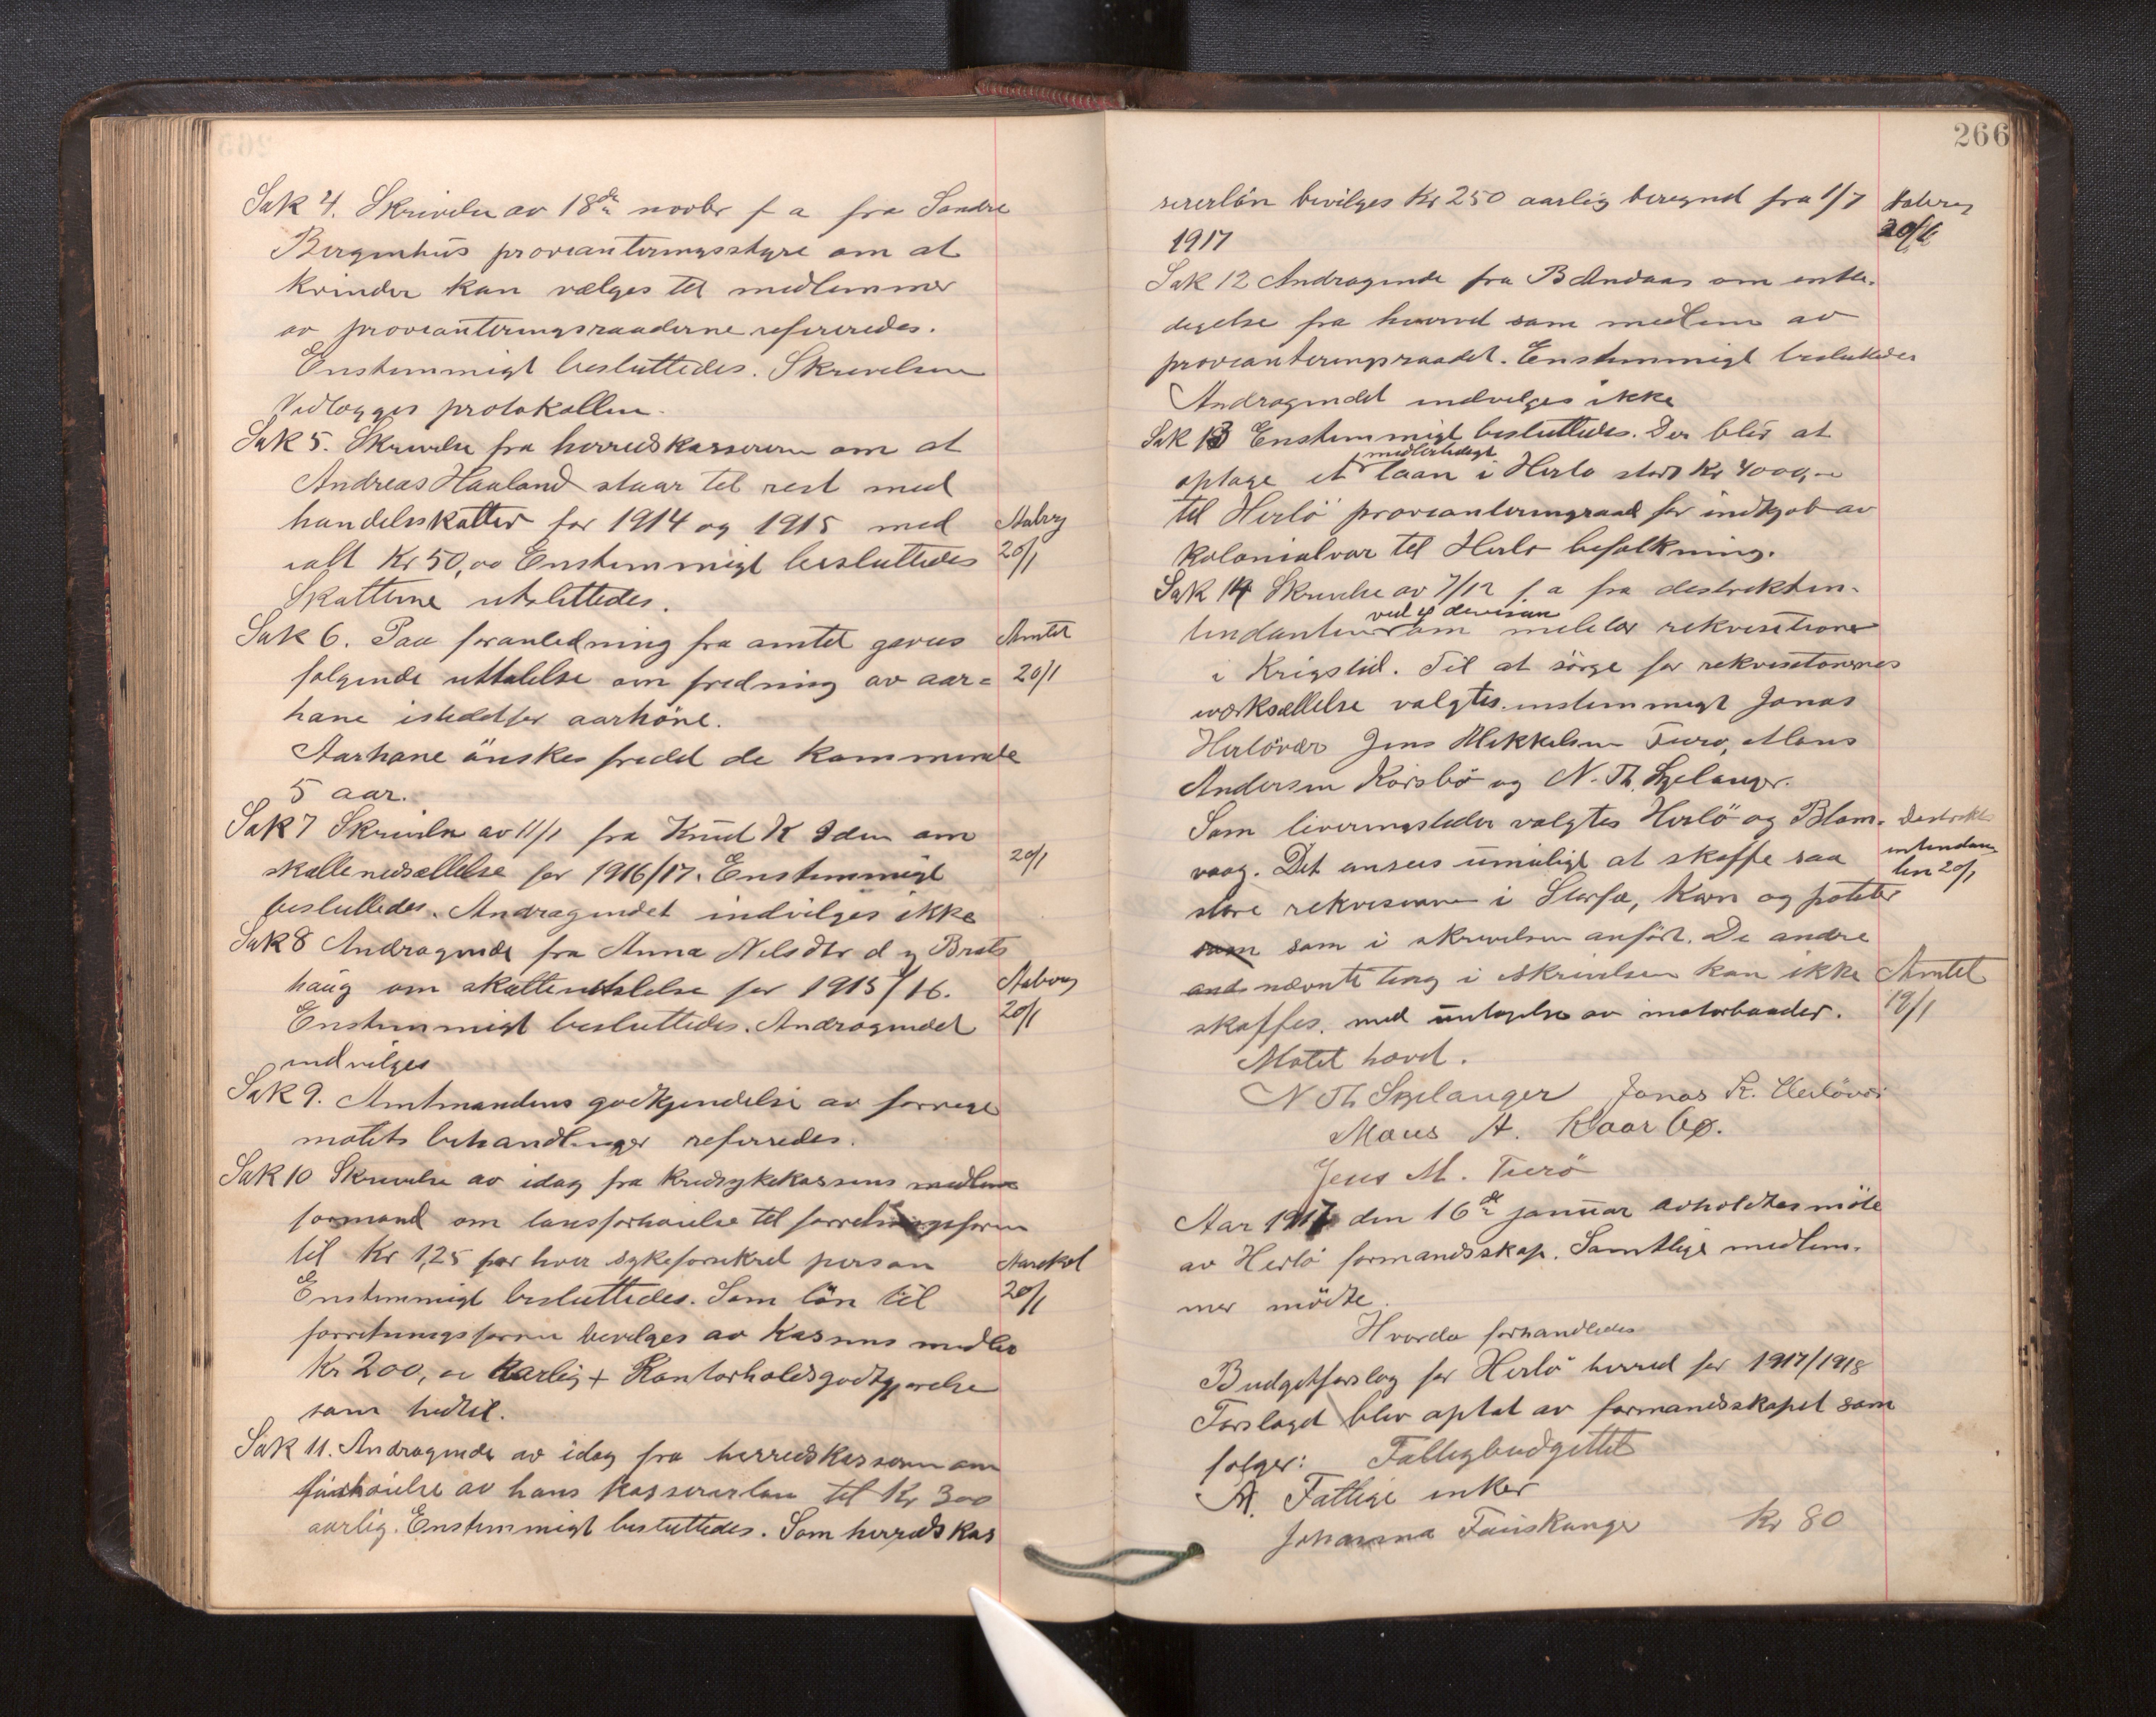 Sak 4. Skrivelse av 18de novbr f a fra Søndre
Bergenhus provianteringsstyre om at
kvinder kan vælges til medlemmer
av provianteringsraaderne refereredes.
Enstemmigt besluttedes. Skrivelsen
vedlægges protokollen.
Sak 5. Skrivelse fra herredskassereren om at
Andreas Haaland staar til rest med
handelsskatter for 1914 og 1915 med
ialt Kr 50,00 Enstemmigt besluttedes
Skatterne utslettedes.
Aaberg
20/1
Sak 6. Paa foranledning fra amtet gaves
følgende uttalelse om fredning av aar=
hane istedetfor aarhöne.
Aarhane önskes fredet de kommende
5 aar.
Amtet
20/1
Sak 7 Skrivelse av 11/1 fra Knud K Iden om
skattenedsættelse for 1916/17. Enstemmigt
besluttedes. Andragendet indvilges ikke
20/1
Sak 8 Andragende fra Anna Nilsdtr d y Brats
haug om skatteutslettelse for 1915/16.
Enstemmigt besluttedes. Andragendet
indvilges
Aaberg
20/1
Sak 9. Amtmandens godkjendelse av forrige
møtets behandlinger refereredes.
Sak 10 Skrivelse av idag fra kredssykekassens medlem
formand om lønsforhøielse til forretningsføren
til Kr 1,25 for hver sykeforsikret person
Enstemmigt besluttedes. Som lön til
forretningsføren bevilges av kassens midler
Kr 200, oo aarlig + Kontorholdsgodtgjørelse
som hidtil.
20/1
Sak 11. Andragende av idag fra herredskasseren om
forhøielse av hans kassererløn til Kr 300
aarlig. Enstemmigt besluttedes. Som herredskas
266
sererlön bevilges Kr 250 aarlig beregnet fra 1/7
1917
Aaberg
20/1
Sak 12 Andragende fra B Andaas om entle-
digelse fra hvervet som medlem av
provianteringsraadet. Enstemmigt besluttedes
Andragendet indvilges ikke
Sak 13 Enstemmigt besluttedes. Der blir at
optage et midlertidigt laan i Herlø stort Kr 4000,-
til Herlö provianteringsraad for indkjøb av
kolonialvar til Herlø befolkning.
Sak 14 Skrivelse av 7/12 f a fra distriktsin-
tendanten ved 4 division om militær rekvisitioner
i Krigstid. Til at sörge for rekvisitionernes
iverksættelse valgtes enstemmigt Jonas
Herlövær Jens Mikkelsen Turö, Mons
Andersen Körsbö og N. Th. Skjelanger.
Som leveringssteder valgtes Herlö og Blom-
vaag. Det ansees umuligt at skaffe saa
store rekvisitioner i Storfæ, Korn og poteter
som som i skrivelsen anfört. De andre
and nævnte ting i skrivelsen kan ikke
skaffes. med undtagelse av motorbaader.
Møtet hævet.
Distrikts
intendan
ten 20/1
Amtet
19/1
N Th Skjelanger Jonas K. Herlövær
Mons A. Kaarbø.
Jens M. Turö
Aar 1917 den 16de januar avholdtes möte
av Herlö formandsskap. Samtlige medlem-
mer mödte.
Hvorda forhandledes
Budgetforslag for Herlö herred for 1917/1918
Forslaget blev optat av formandsskapet som
følger: Fattigbudgettet
A. Fattige enker
Johanna Fauskanger Kr 80